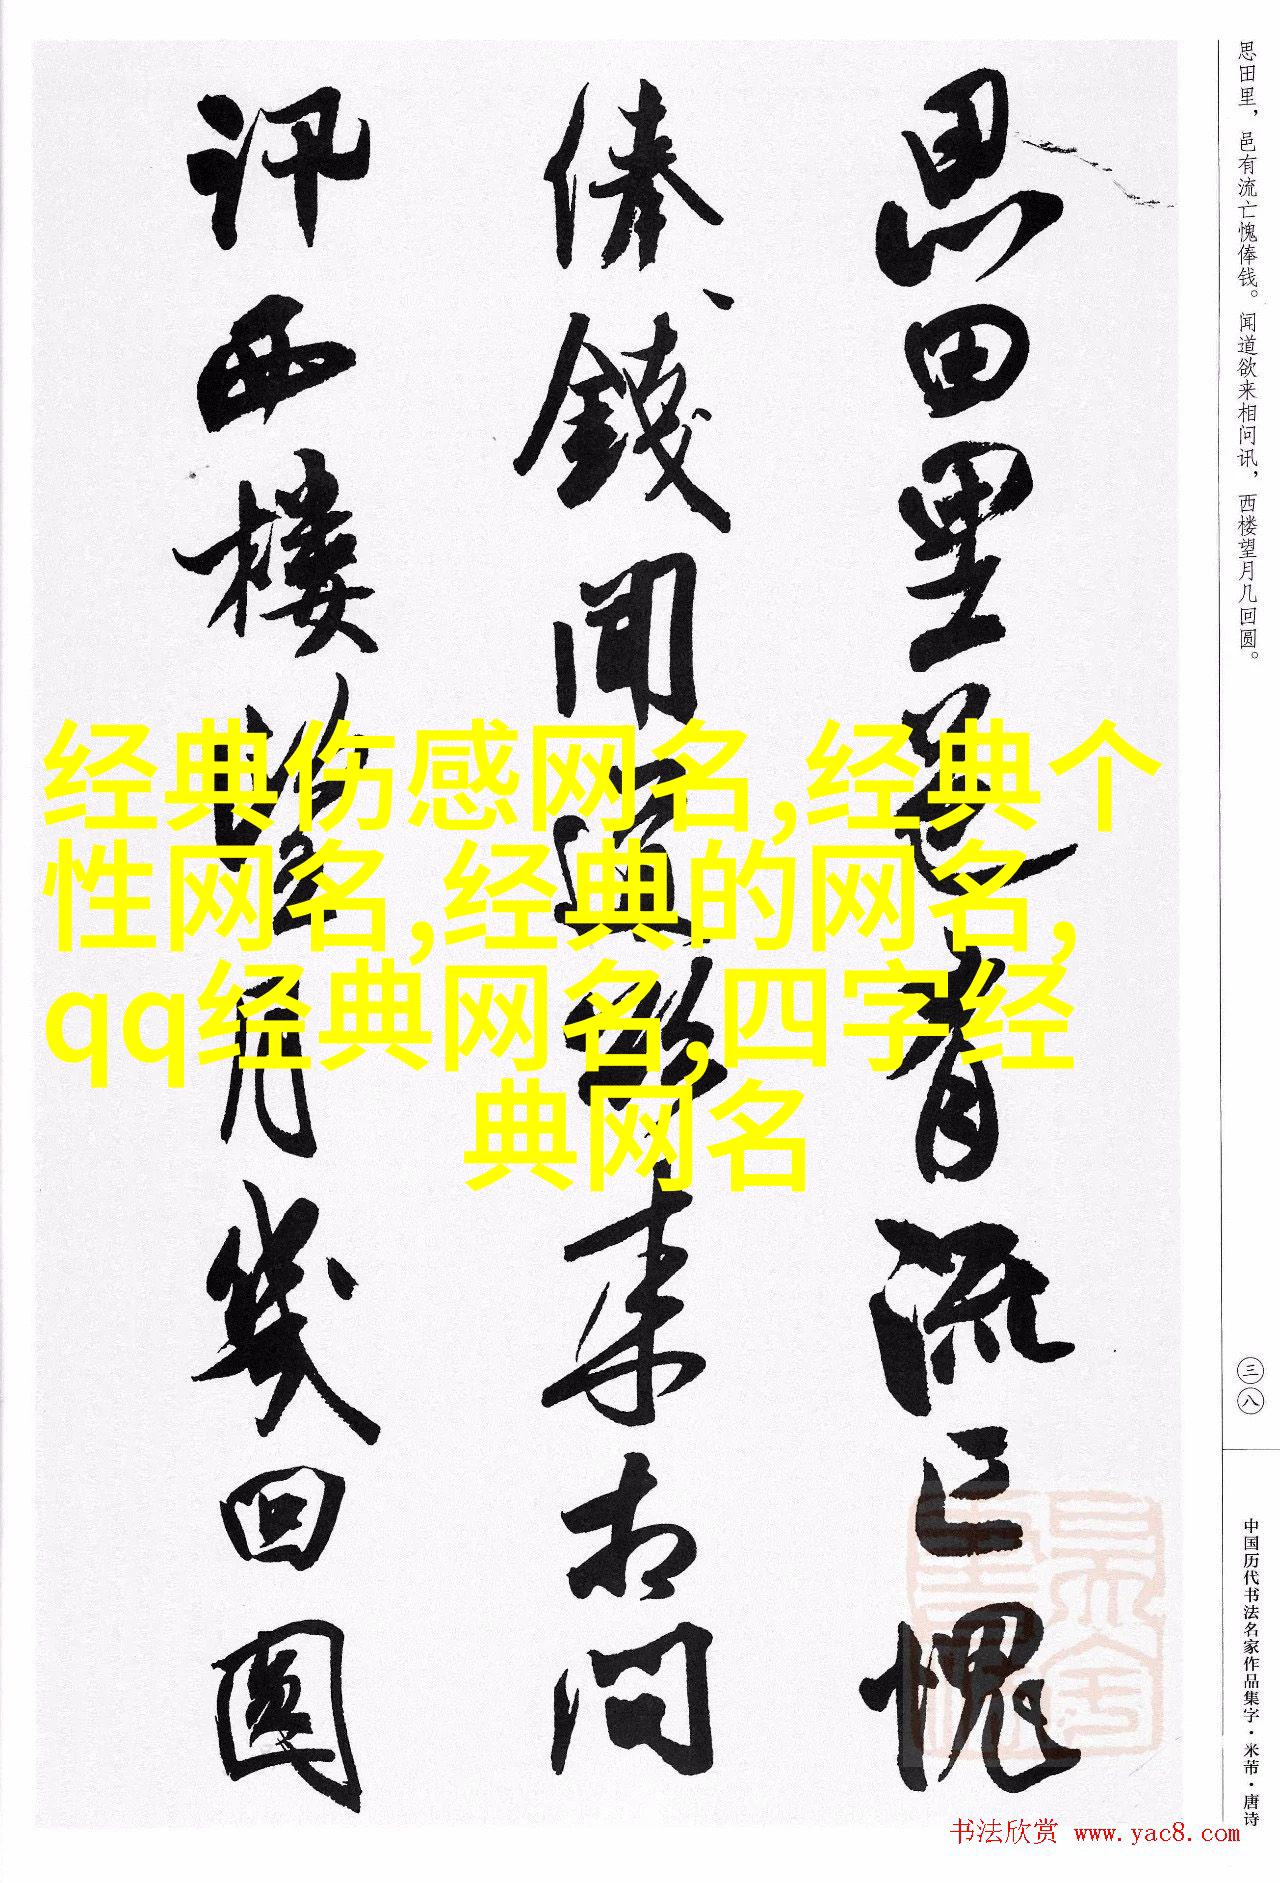 思田里邑有流亡愧
俸錢聞道欲来相問
訊西樓望月幾回圓
思田里，邑有流亡愧俸钱。闻道欲来相问讯，西楼望月几回圆。
三八
中国历代书法名家作品集字·米芾·唐诗
经典伤感网名,经典个
性网名,经典的网名,
qq经典网名,四字经
典网名
书法欣赏 www.yac8.com